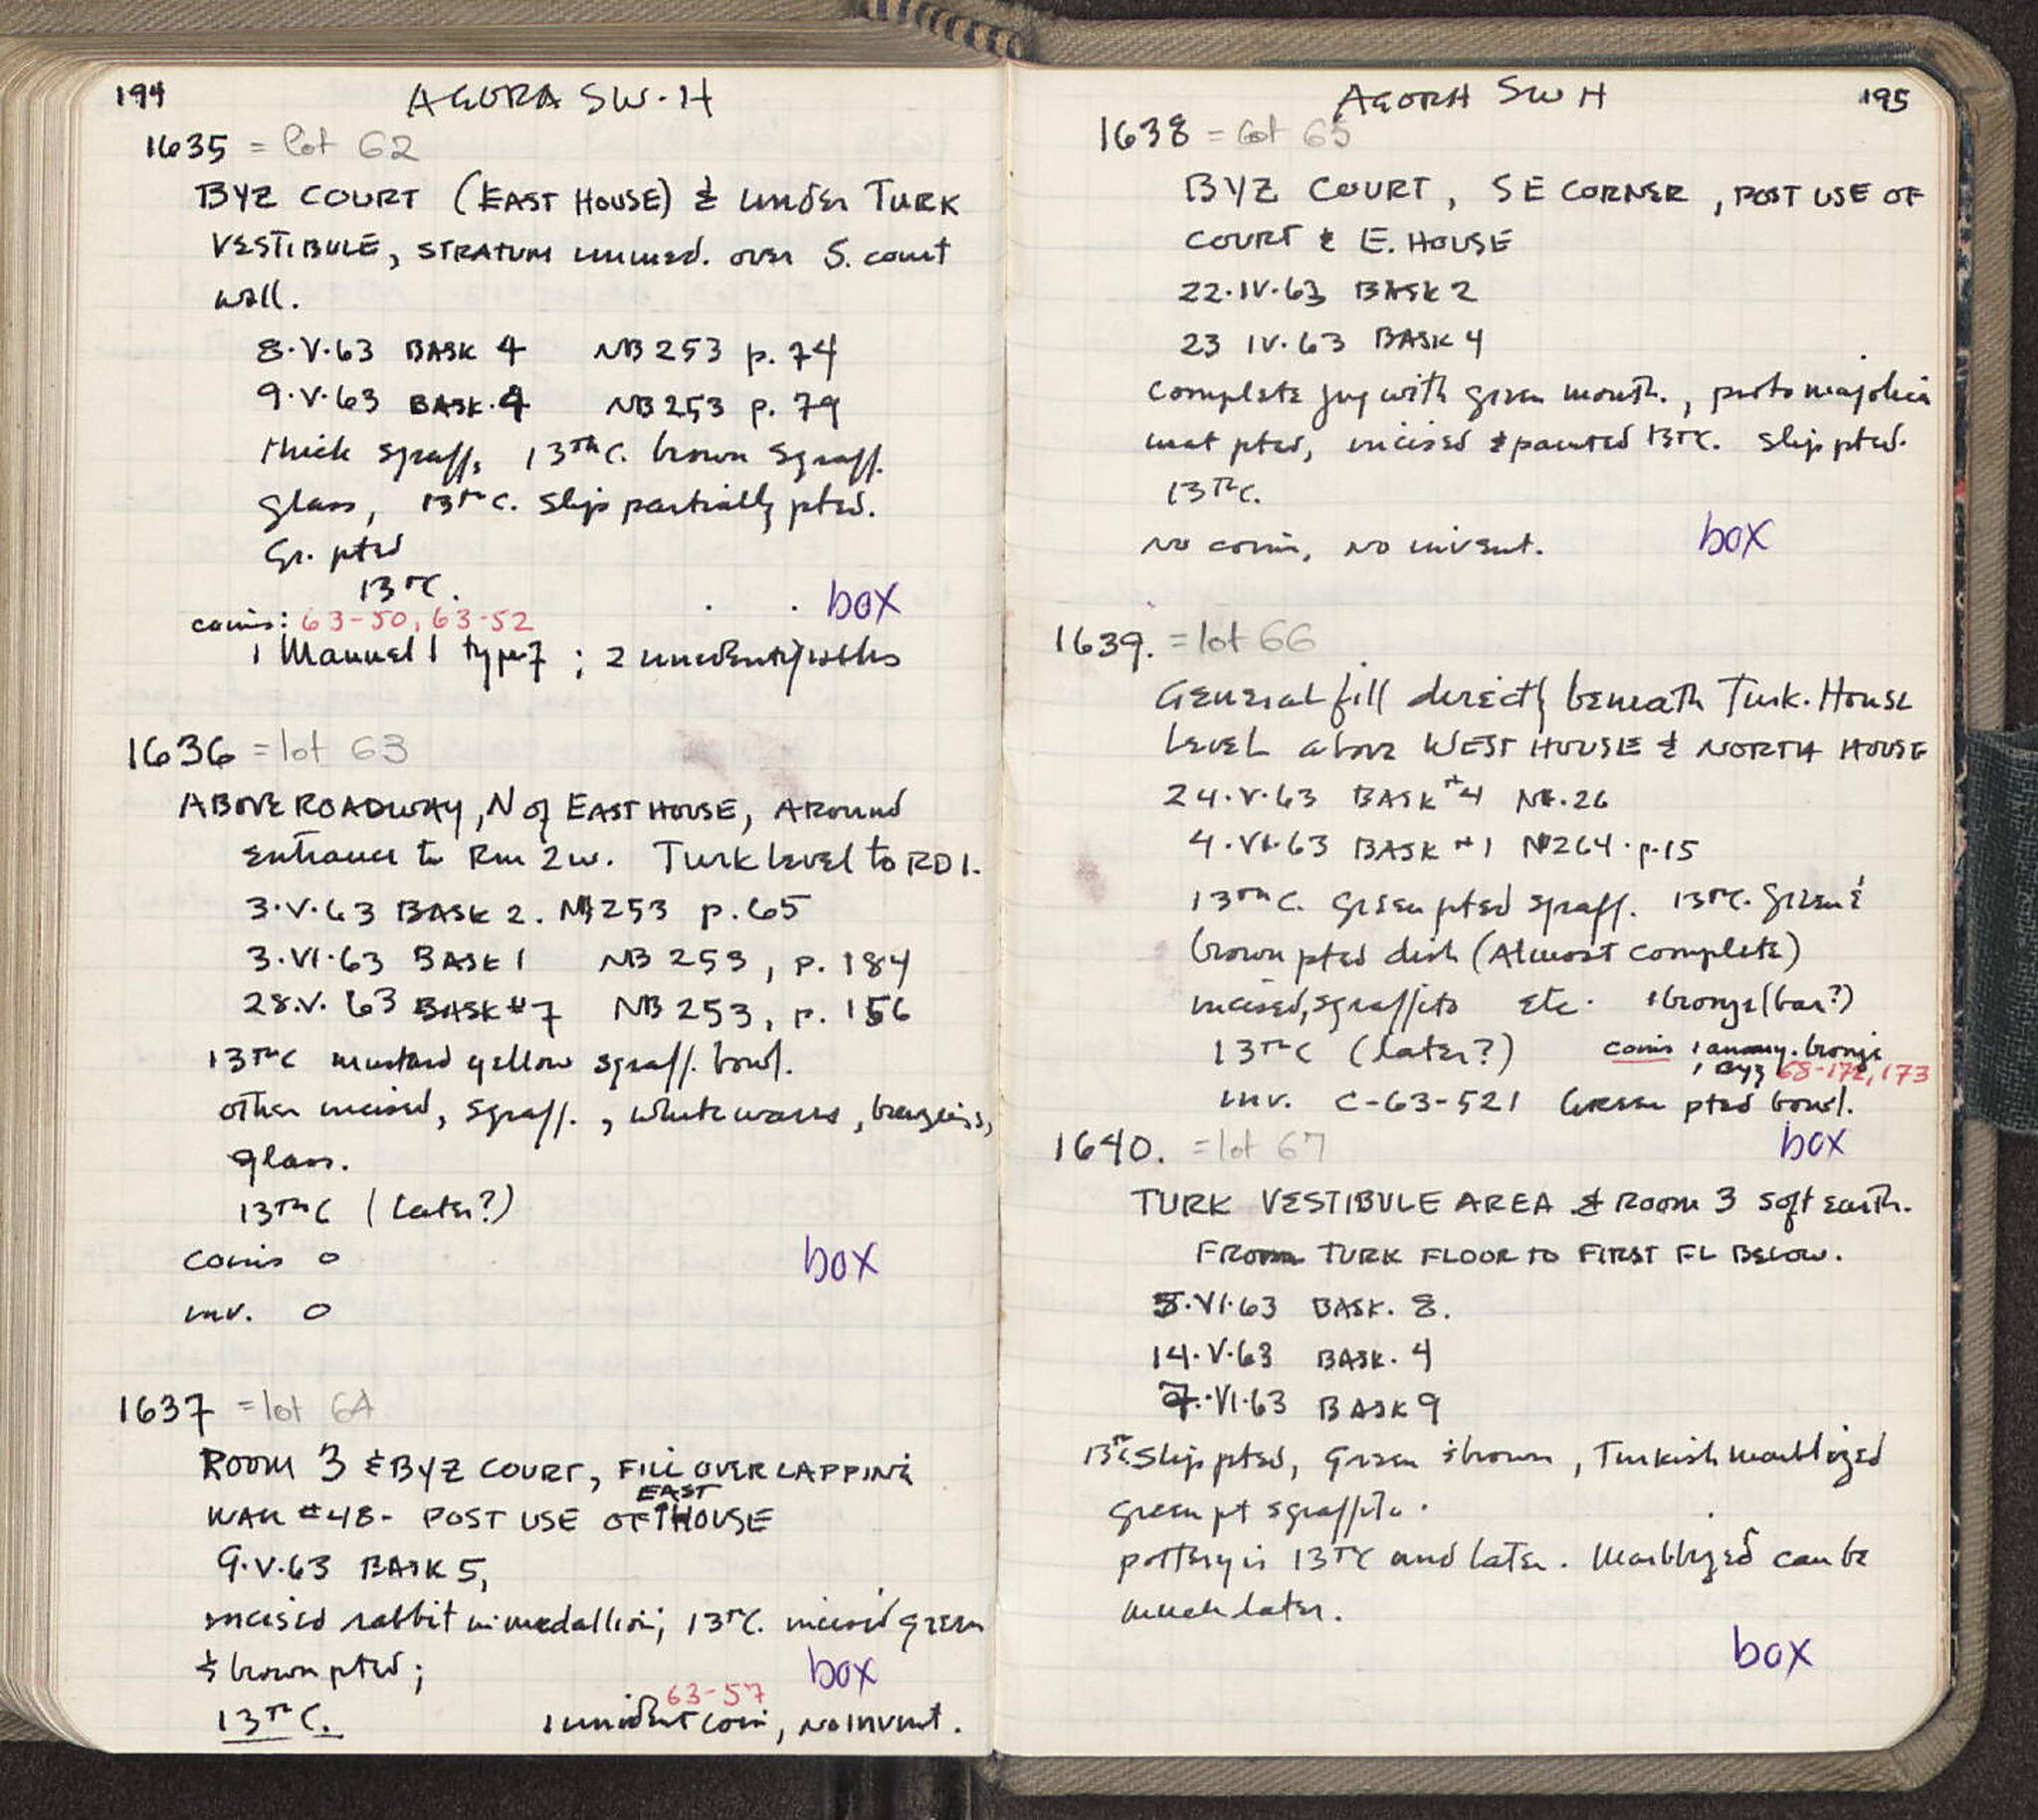 194 AGORA SW-H
1635 = lot 62
BYZ COURT (EAST HOUSE) & under TURK
VESTIBULE, STRATUM immed. over S. court
wall.
8·V·63 BASK 4 NB 253 p. 74
9·V·63 BASK·4 NB 253 p. 79
thick sgraff, 13TH C. brown Sgraff.
glass, 13TH C. Slip partially pted.
Gr. pted
13TH C.
box
coins: 63-50, 63-52
1 Manuel I type 7 ; 2 unidentifiables
1636 = lot 63
ABOVE ROADWAY, N of EAST HOUSE, AROUND
entrance to Rm 2w. TURK level to RD 1.
3·V·63 BASK 2. NB 253 p. 65
3·VI·63 BASK 1 NB 253, p. 184
28·V·63 BASK #7 NB 253, p. 156
13TH C mustard yellow sgraff. bowl.
other incised, sgraff., white wares,
glass.
13TH C (later?)
coins 0
box
inv. 0
1637 = lot 64
ROOM 3 & BYZ COURT, FILL OVERLAPPING
WALL #48- POST USE OF EAST HOUSE
9·V·63 BASK 5,
incised rabbit in medallion; 13TH C. incised green
& brown pted;
box
63-57
13TH C. 1 unident coin, no invent.
AGORA SW H 195
1638 = lot 65
BYZ COURT, SE CORNER, POST USE OF
COURT & E. HOUSE
22·IV·63 BASK 2
23 IV·63 BASK 4
complete jug with green mouth., proto majolica
mat pted, incised & painted 13TH C. slip pted.
13TH C.
no coins, no invent.
box
1639. = lot 66
General fill directly beneath Turk. House
level above WEST HOUSE & NORTH HOUSE
24·V·63 BASK #4 26
4·VI·63 BASK #1 NB264·p·15
13TH C. green pted sgraff. 13TH C. green &
brown pted dish (Almost complete)
incised, sgraffito etc. 1 bronze (bar?)
13TH C (later?) coins 1 anony. bronze
1 Byz 68-172, 173
inv. C-63-521 Green pted bowl.
box
1640. = lot 67
TURK VESTIBULE AREA & ROOM 3 soft earth.
FROM TURK FLOOR TO FIRST FL BELOW.
5·VI·63 BASK. 8.
14·V·63 BASK. 4
7·VI·63 BASK 9
13TH C Slip pted, green & brown, Turkish marblized
green pt sgraffito.
pottery is 13TH C and later. Marblized can be
much later.
box